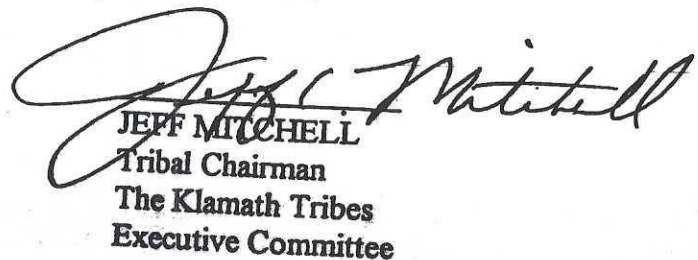 Jeff C Mitchell
JEFF MITCHELL
Tribal Chairman
The Klamath Tribes
Executive Committee